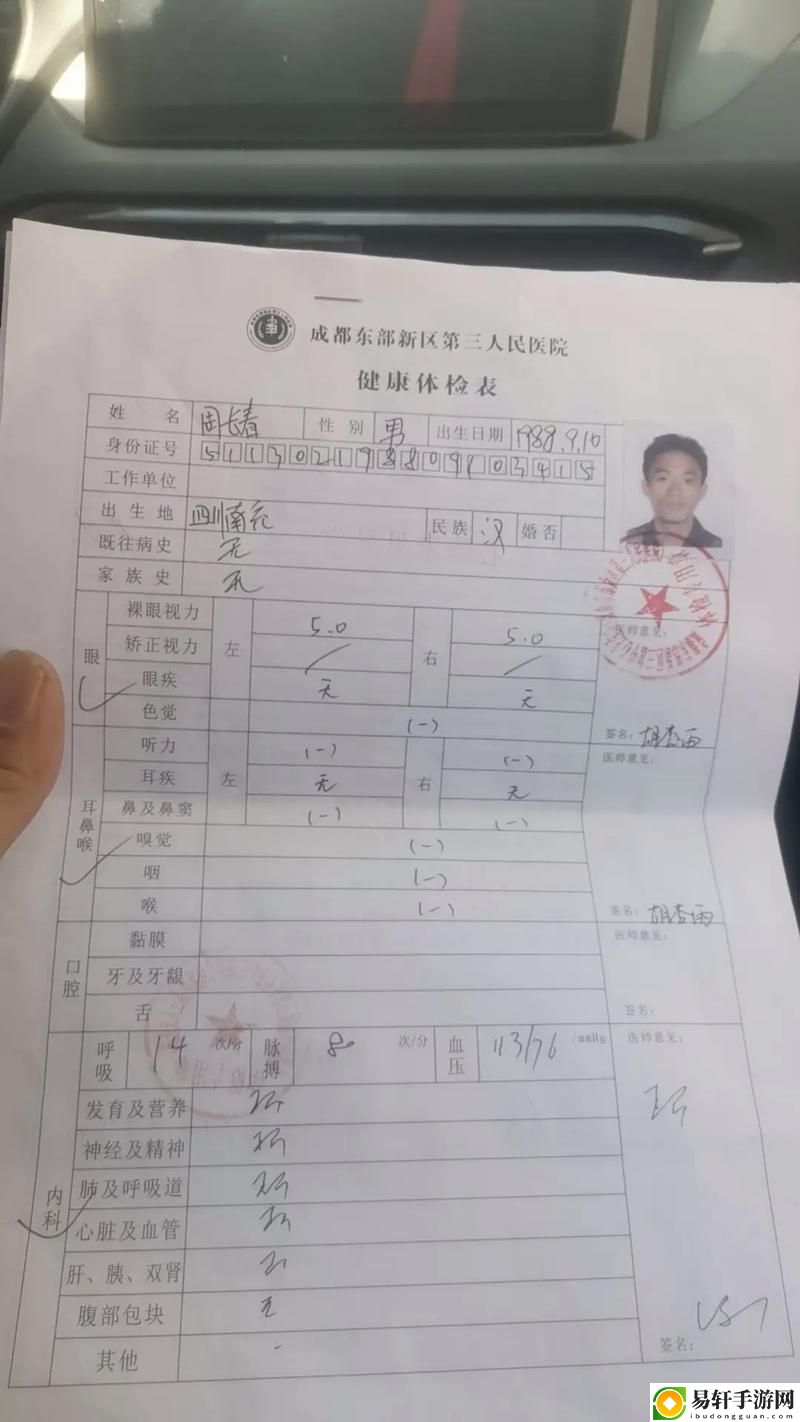 成都东部新区第三人民医院
健康体检表
姓名 周长春 性别 男 出生日期 1988.9.10
身份证号 511302198809103415
工作单位
出生地 四川南充 民族 汉 婚否
既往病史 无
家族史 无
眼
裸眼视力 左 5.0 右 5.0 医师意见：
矫正视力 / /
眼疾 无 无
色觉 (-) 签名：
耳鼻喉
听力 左 (-) 右 (-) 医师意见：
耳疾 无 无
鼻及鼻窦 (-) (-)
嗅觉 (-)
咽 (-)
喉 (-) 签名：
口腔
黏膜 医师意见：
牙及牙龈
舌 签名：
内科
呼吸 14 次/分 脉搏 80 次/分 血压 113/76 /mmHg 医师意见：
发育及营养
神经及精神
肺及呼吸道
心脏及血管
肝、胰、双肾
腹部包块 无
其他 - 签名：
易轩手游网
ibudongguan.com